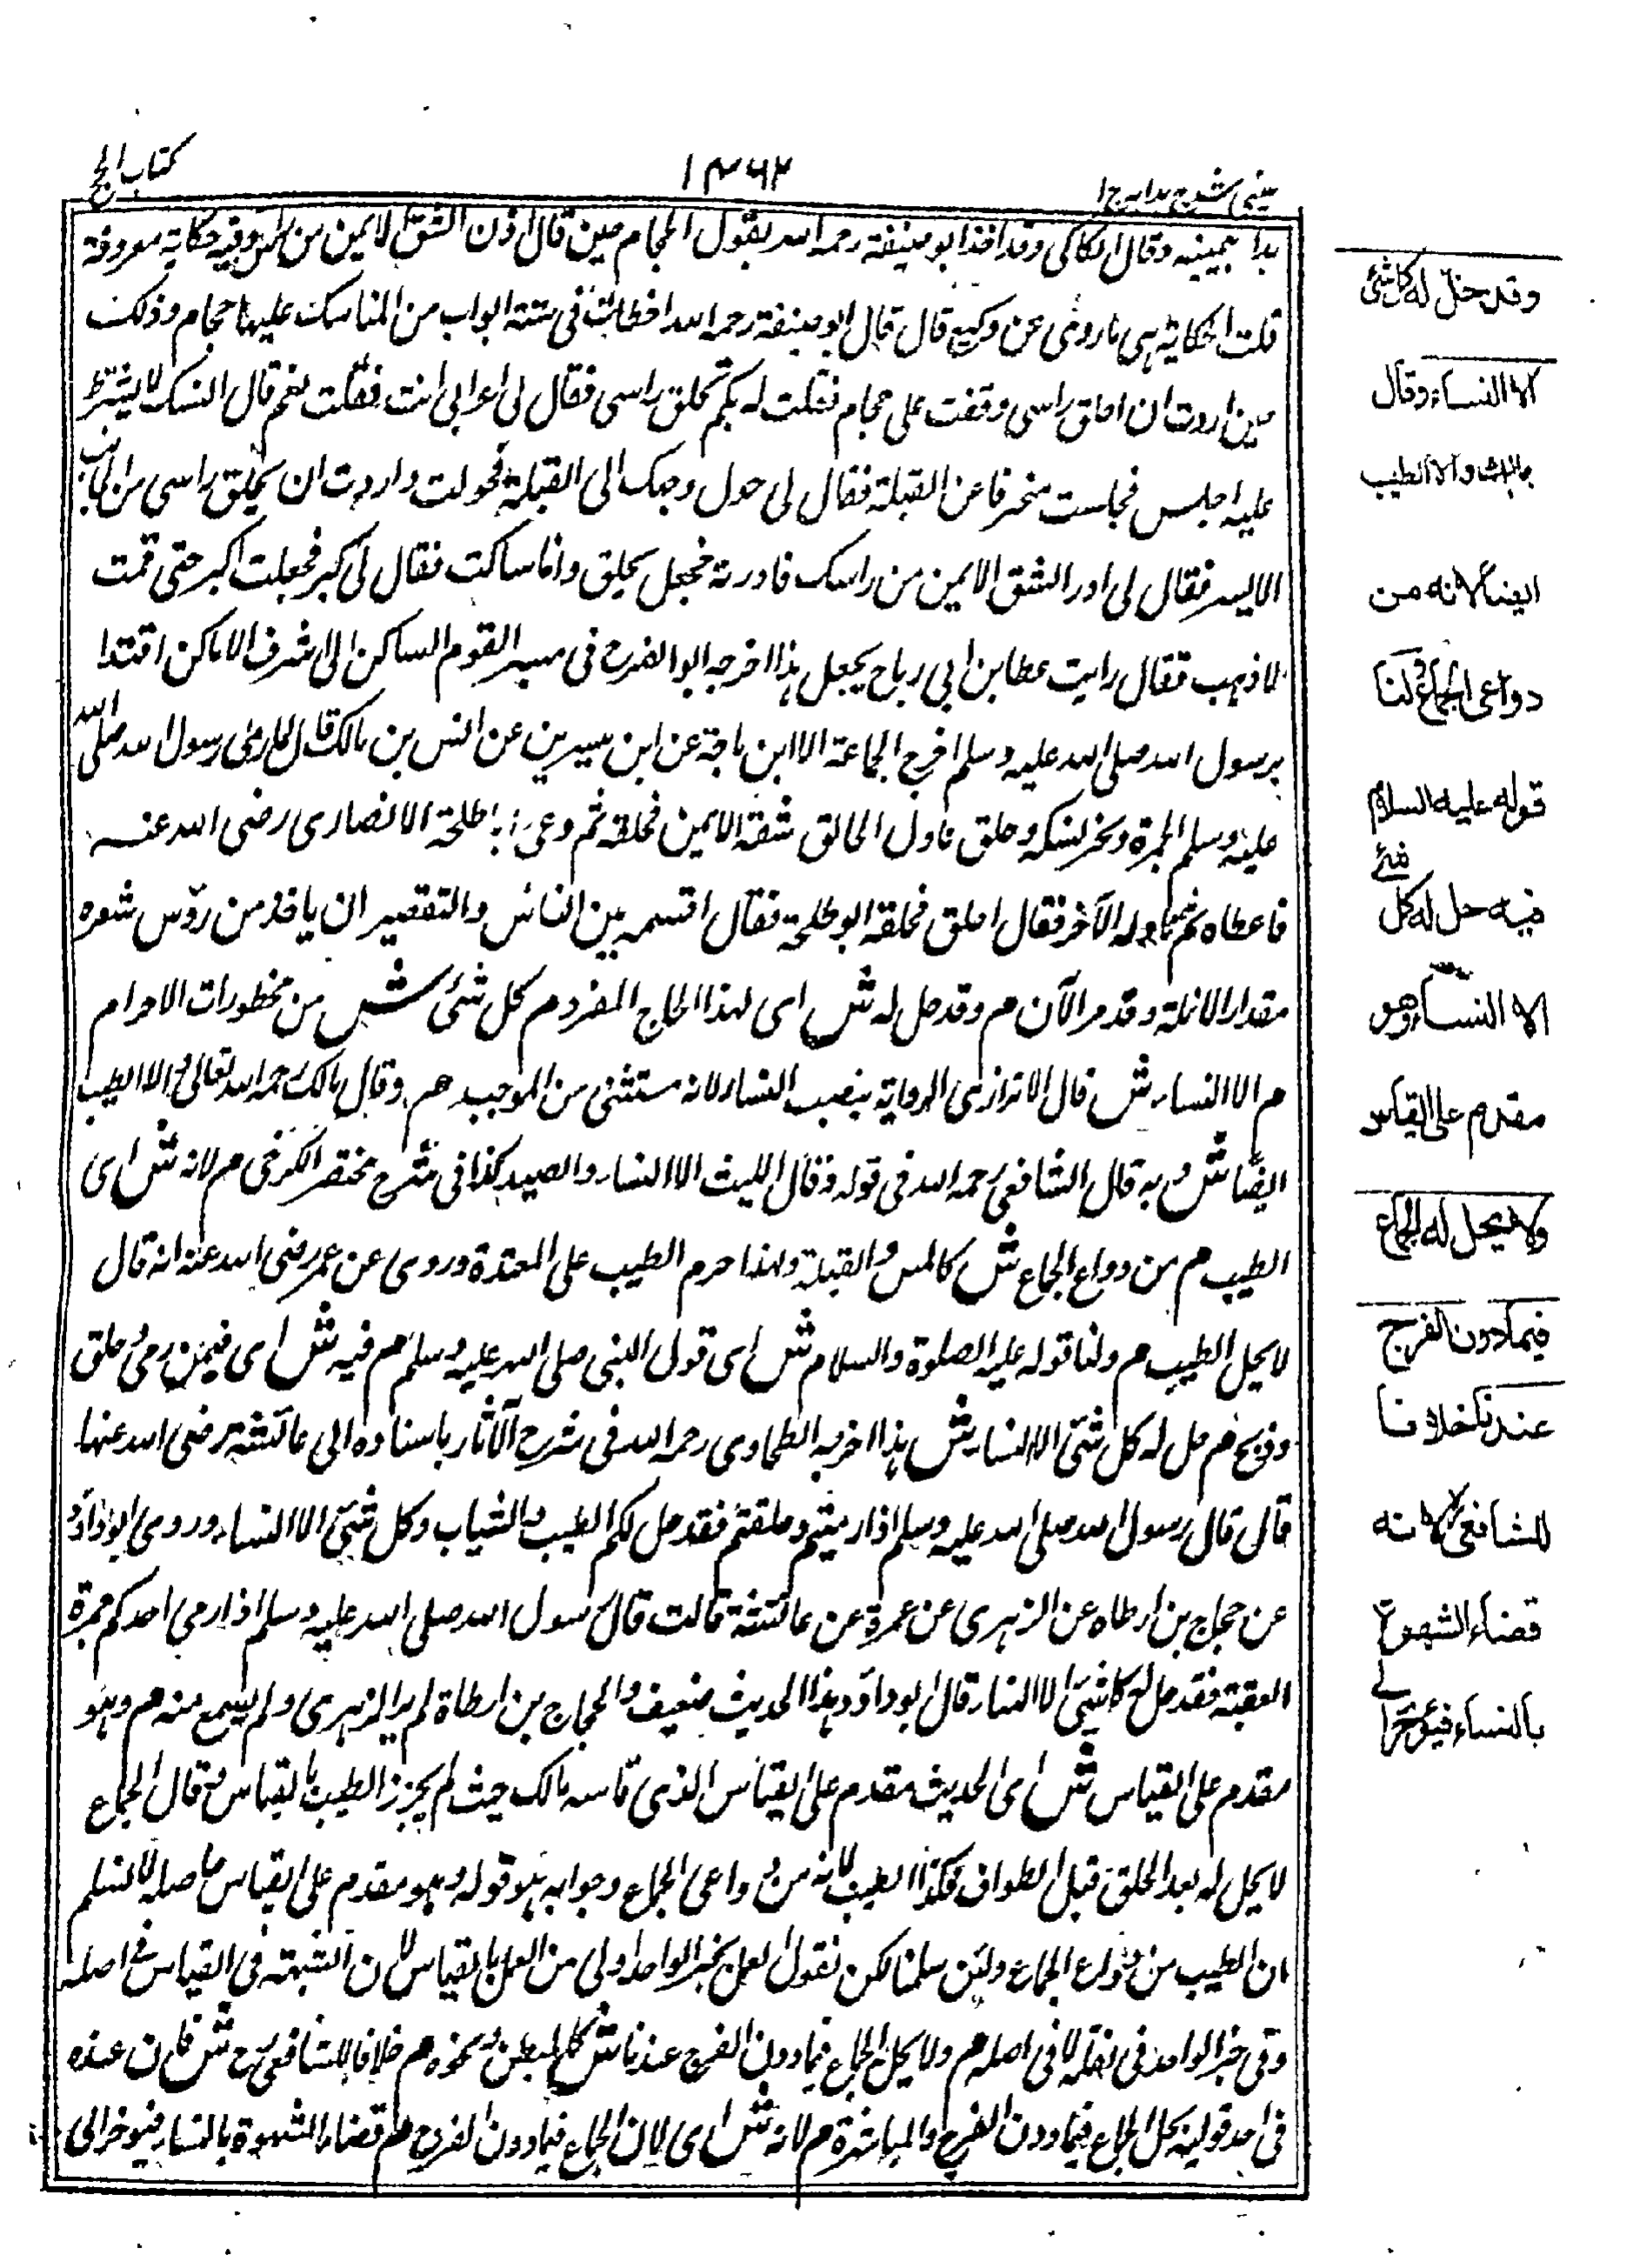 عینی شرح ہدایہ ج ا
۱۳۶۲
کتاب الحج
بدا بیمینہ وقال الکاکی وقد اخذ ابو حنیفۃ رحمہ اللہ بقول الحجام حین قال اذن الشق الایمن من وفیہ حکایۃ معروفۃ
قلت الحکایۃ ہی ما روی عن وکیع قال قال ابو حنیفۃ رحمہ اللہ اخطات فی ستۃ ابواب من المناسک علیہا حجام وذلک
حین اردت ان احلق راسی وقفت علی حجام فقلت لہ بکم تحلق راسی فقال لی اعرابی انت فقلت نعم قال النسک لا یشترط
علیہ اجلس فجلست منحرفا عن القبلۃ فقال لی حول وجہک الی القبلۃ فحولت واردت ان یحلق راسی من الجانب
الایسر فقال لی ادر الشق الایمن من راسک فادرتہ فجعل یحلق وانا ساکت فقال لی کبر فجعلت اکبر حتی قمت
لاذہب فقال رایت عطا بن ابی رباح یجعل ہذا اخرجہ ابو الفرح فی القوم الساکن الی اشرف الاماکن اقتدا
برسول اللہ صلی اللہ علیہ وسلم اخرج الجماعۃ الا ابن ماجۃ عن ابن سیرین عن انس بن مالک قال لما رمی رسول اللہ صلی اللہ
علیہ وسلم الجمرۃ ونحر نسکہ وحلق ناول الحالق شقہ الایمن فحلقہ ثم دعی ابا طلحۃ الانصاری رضی اللہ عنہ
فاعطاہ ثم ناولہ الآخر فقال احلق فحلقہ ابو طلحۃ فقال اقسمہ بین الناس والتقصیر ان یاخذ من رؤس شعرہ
مقدار الانملۃ وقد مر الآن م وقد حل لہ ش ای لہذا الحاج المفرد م کل شئی ش من محظورات الاحرام
م الا النساء ش قال الاترازی الروایۃ بنصب النساء لانہ مستثنی من الموجب م وقال مالک رحمہ اللہ تعالی والا الطیب
ایضا ش وبہ قال الشافعی رحمہ اللہ فی قولہ وقال اللیث الا النساء والصید کذا فی شرح مختصر الکرخی م لانہ ش ای
الطیب م من دواع الجماع ش کالمس والقبلۃ ولہذا حرم الطیب علی المعتدۃ وروی عن عمر رضی اللہ عنہ انہ قال
لا یحل الطیب م ولنا قولہ علیہ الصلوۃ والسلام ش ای قول النبی صلی اللہ علیہ وسلم م فیہ ش ای فیمن رمی وحلق
وذبح م حل لہ کل شئی الا النساء ش ہذا اخرجہ الطحاوی رحمہ اللہ فی شرح الآثار باسنادہ الی عائشۃ رضی اللہ عنہا
قال قال رسول اللہ صلی اللہ علیہ وسلم اذا رمیتم وحلقتم فقد حل لکم الطیب والثیاب وکل شئی الا النساء وروی ابو داؤد
عن حجاج بن ارطاہ عن الزہری عن عمرۃ عن عائشۃ قالت قال رسول اللہ صلی اللہ علیہ وسلم اذا رمی احدکم جمرۃ
العقبۃ فقد حل لہ کل شئی الا النساء قال ابو داؤد وہذا الحدیث ضعیف والحجاج بن ارطاۃ لم یر الزہری ولم یسمع منہ م وہو
مقدم علی القیاس ش ای الحدیث مقدم علی القیاس الذی قاسہ مالک حیث لم یجز الطیب بالقیاس قال الجماع
لا یحل لہ بعد الحلق قبل الطواف فکذا الطیب لانہ من دواعی الجماع وجوابہ ہو قولہ وہو مقدم علی القیاس حاصلہ لا نسلم
ان الطیب من دواع الجماع ولئن سلمنا لکن نقول العمل بخبر الواحد اولی من العمل بالقیاس لان الشبہۃ فی القیاس فی اصلہ
وفی خبر الواحد فی نقلہ لا فی اصلہ م ولا یحل لہ الجماع فیما دون الفرج عندنا ش کالبطن ونحوہ م خلافا للشافعی ش فان عندہ
فی احد قولیہ یحل الجماع فیما دون الفرج والمباشرۃ م لانہ ش ای لان الجماع فیما دون الفرج م قضاء الشہوۃ بالنساء فیؤخر الی
وقد حل له کل شئ
الا النساء وقال
مالك والا الطیب
ایضا لانه من
دواعی الجماع ولنا
قوله علیه السلام
فیه حل له کل شئ
الا النساء وهو
مقدم علی القیاس
ولا یحل له الجماع
فیما دون الفرج
عندنا خلافا
للشافعی لانه
قضاء الشهوة
بالنساء فیؤخر الی